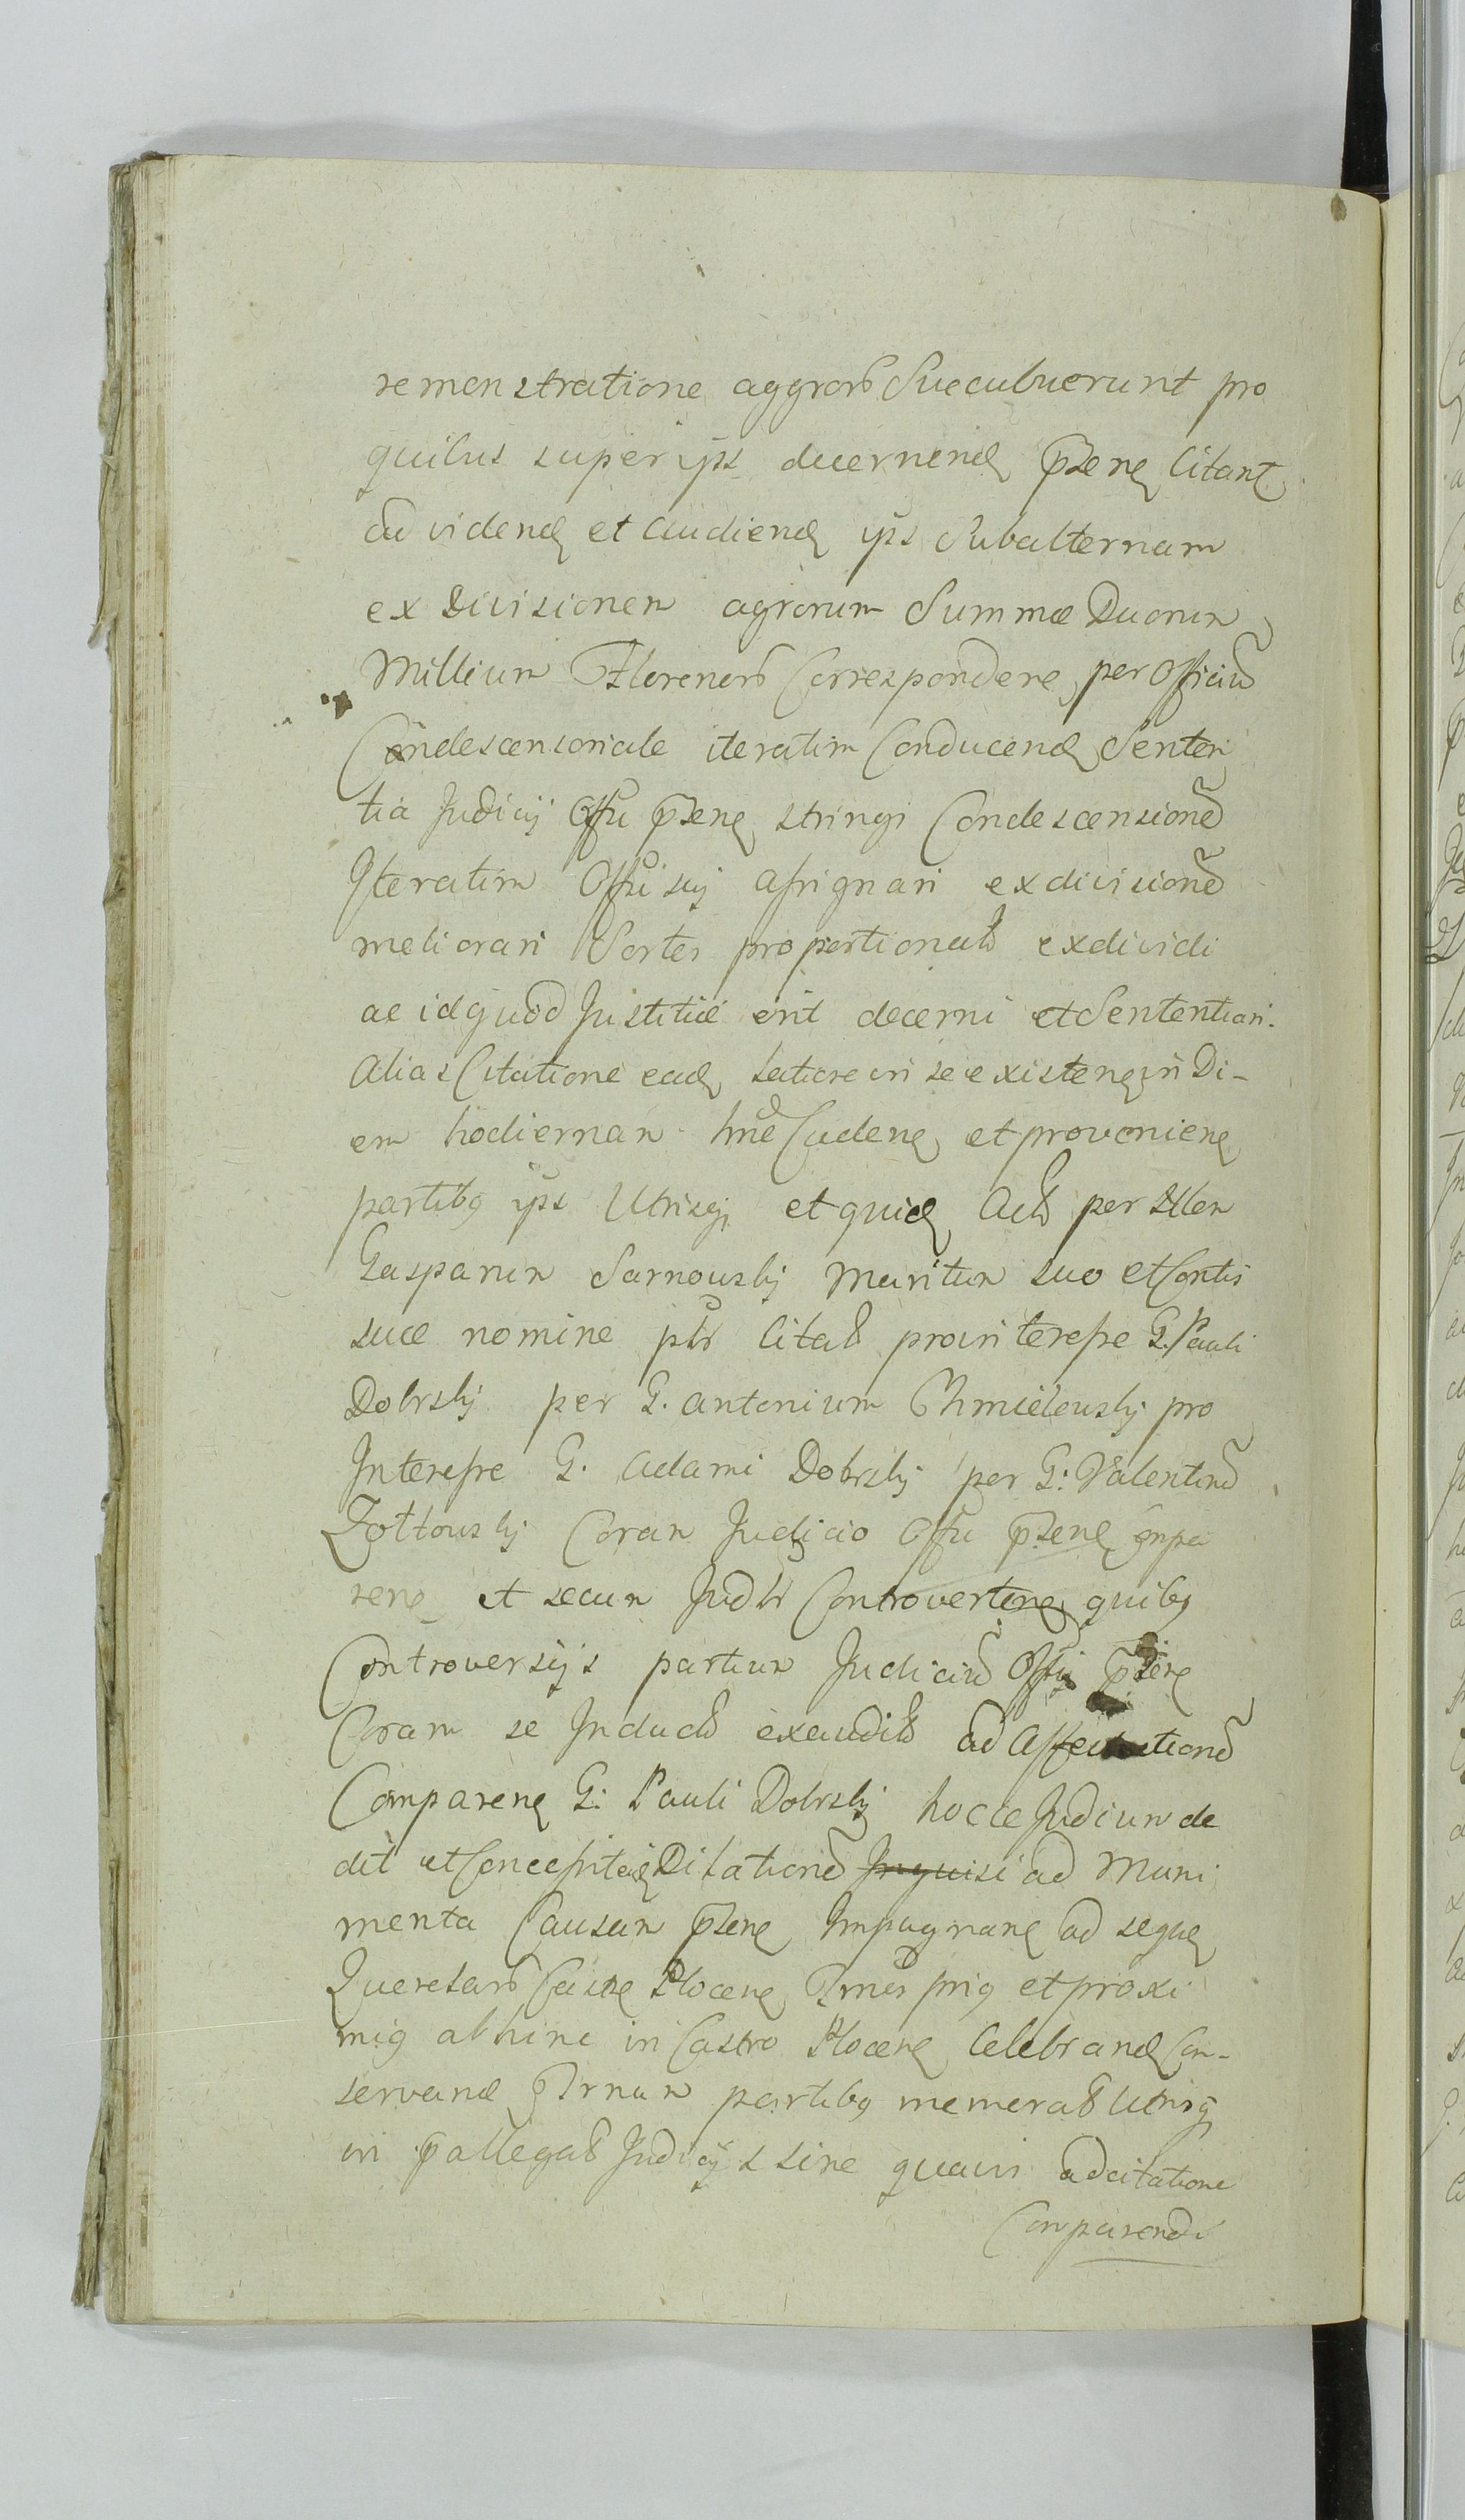 remonstratione aggrorũ Succubuerunt pro
quibus super ijs decernend p̃sens Citant
ad vidend et audiend ijs Subalternam
exdivisionem agrorum Summæ Duorum
Millium Florenorũ Correspondere per Officiũ
Condescensoriale iteratim Conducend Senten
tia Judicij Offii p̃sens stringi Condescensionẽ
Iteratim Offii sui assignari exdivisionẽ
meliorari Sortes proportionatũ exdividi
ac id quod Justitiæ erit decerni et Sententiari.
Alias Citatione eadẽ latiore in se existeñ in Di-
em hodiernam hnẽ Cadeñ et provenieñ
partibꝫ ijs Utrisqꝫ et quidẽ Actũ per
Gasparum Sarnowskj Maritum suo et Consortis
suæ nomine Citatũ pro interesse G. Pauli
Dobrskj per G. Antonium Chmielewskj pro
Interesse G. Adami Dobrskj per G: Valentinũ
Zottowskj Coram Judicio Offii p̃señ Compa
reñ et secum Controverteñ quibꝫ
Controversijs partium Judiciũ Offii p̃sens
Coram se Inductũ exauditũ ad Affectationẽ
Compareñ G: Pauli Dobrskj hocce Judicium de
dit et Concessit eidẽ Dilationẽ Inquisi ad Muni
menta Causam p̃sens Impugnañ ad seqũ
Querelarũ Ploceñ prius et proxi
mius abhinc in Castro Ploceñ Celebrand Con-
servand Tr̃num partibꝫ memoratũ Utrisqꝫ
in p̃allegatũ Judicijs sine quavis adcitatione
Comparendi